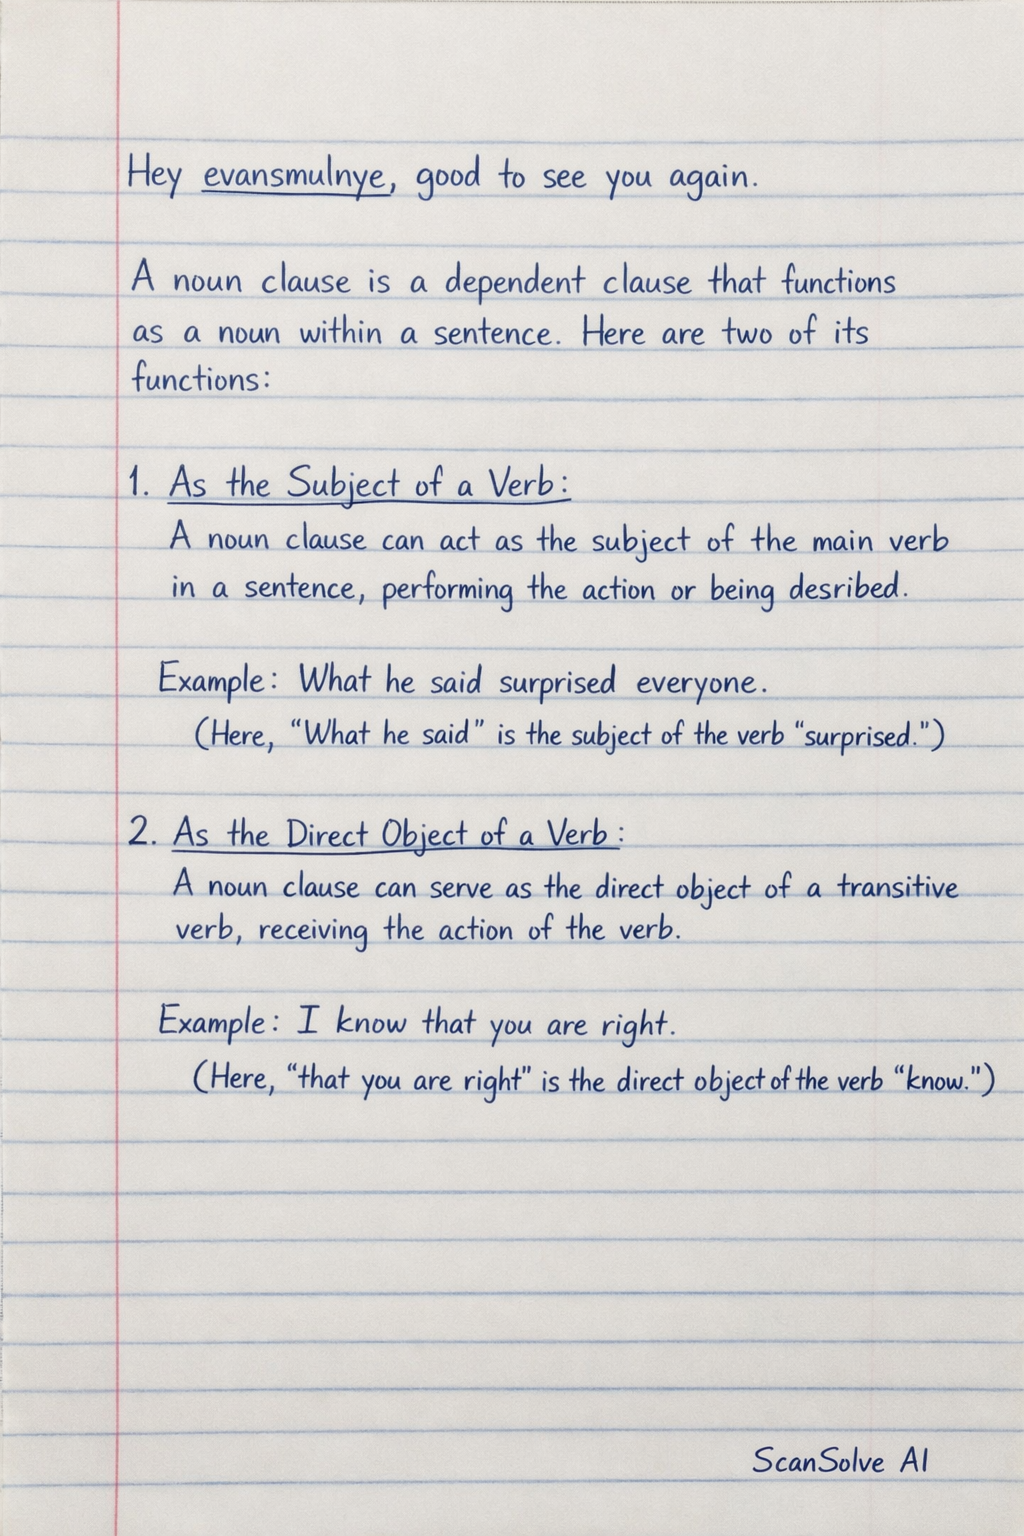 Hey evansmulnye, good to see you again.
A noun clause is a dependent clause that functions
as a noun within a sentence. Here are two of its
functions:
1. As the Subject of a Verb:
A noun clause can act as the subject of the main verb
in a sentence, performing the action or being desribed.
Example: What he said surprised everyone.
(Here, “What he said” is the subject of the verb “surprised.”)
2. As the Direct Object of a Verb:
A noun clause can serve as the direct object of a transitive
verb, receiving the action of the verb.
Example: I know that you are right.
(Here, “that you are right” is the direct object of the verb “know.”)
ScanSolve AI